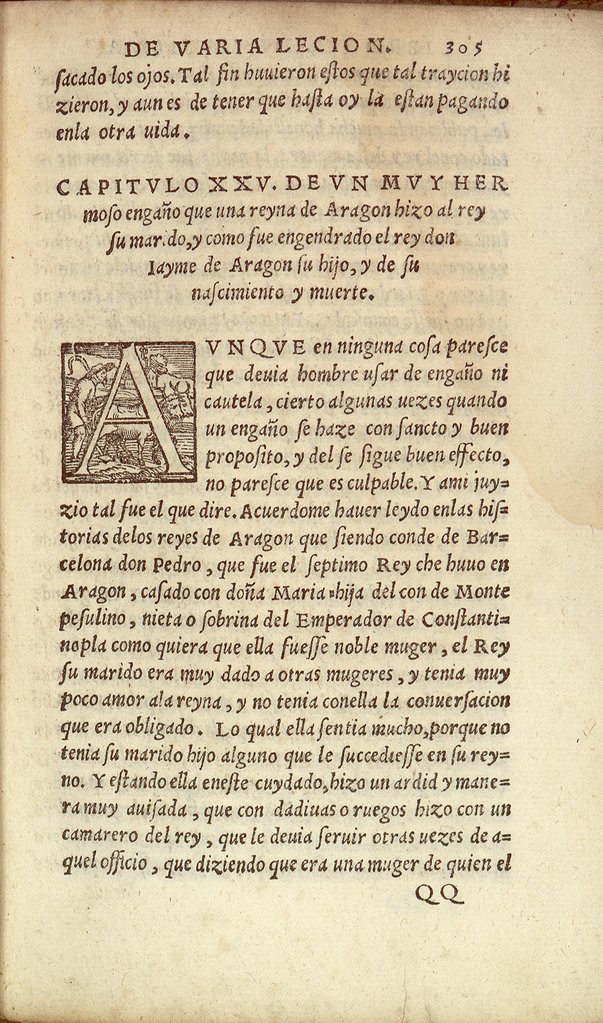 DE VARIA LECION. 305
sacado los ojos. Tal fin huuieron estos que tal traycion hi
zieron, y aun es de tener que hasta oy la estan pagando
enla otra uida.
CAPITVLO XXV. DE VN MVY HER
moso engaño que una reyna de Aragon hizo al rey
su marido, y como fue engendrado el rey don
Iayme de Aragon su hijo, y de su
nascimiento y muerte.
AVNQVE en ninguna cosa paresce
que deuia hombre usar de engaño ni
cautela, cierto algunas uezes quando
un engaño se haze con sancto y buen
proposito, y del se sigue buen effecto,
no paresce que es culpable. Y ami juy=
zio tal fue el que dire. Acuerdome hauer leydo enlas his=
torias delos reyes de Aragon que siendo conde de Bar=
celona don Pedro, que fue el septimo Rey che huuo en
Aragon, casado con doña Maria hija del con de Monte
pesulino, nieta o sobrina del Emperador de Constanti=
nopla como quiera que ella fuesse noble muger, el Rey
su marido era muy dado a otras mugeres, y tenia muy
poco amor ala reyna, y no tenia conella la conuersacion
que era obligado. Lo qual ella sentia mucho, porque no
tenia su marido hijo alguno que le succediesse en su rey=
no. Y estando ella eneste cuydado, hizo un ardid y mane=
ra muy auisada, que con dadiuas o ruegos hizo con un
camarero del rey, que le deuia seruir otras uezes de a=
quel officio, que diziendo que era una muger de quien el
QQ